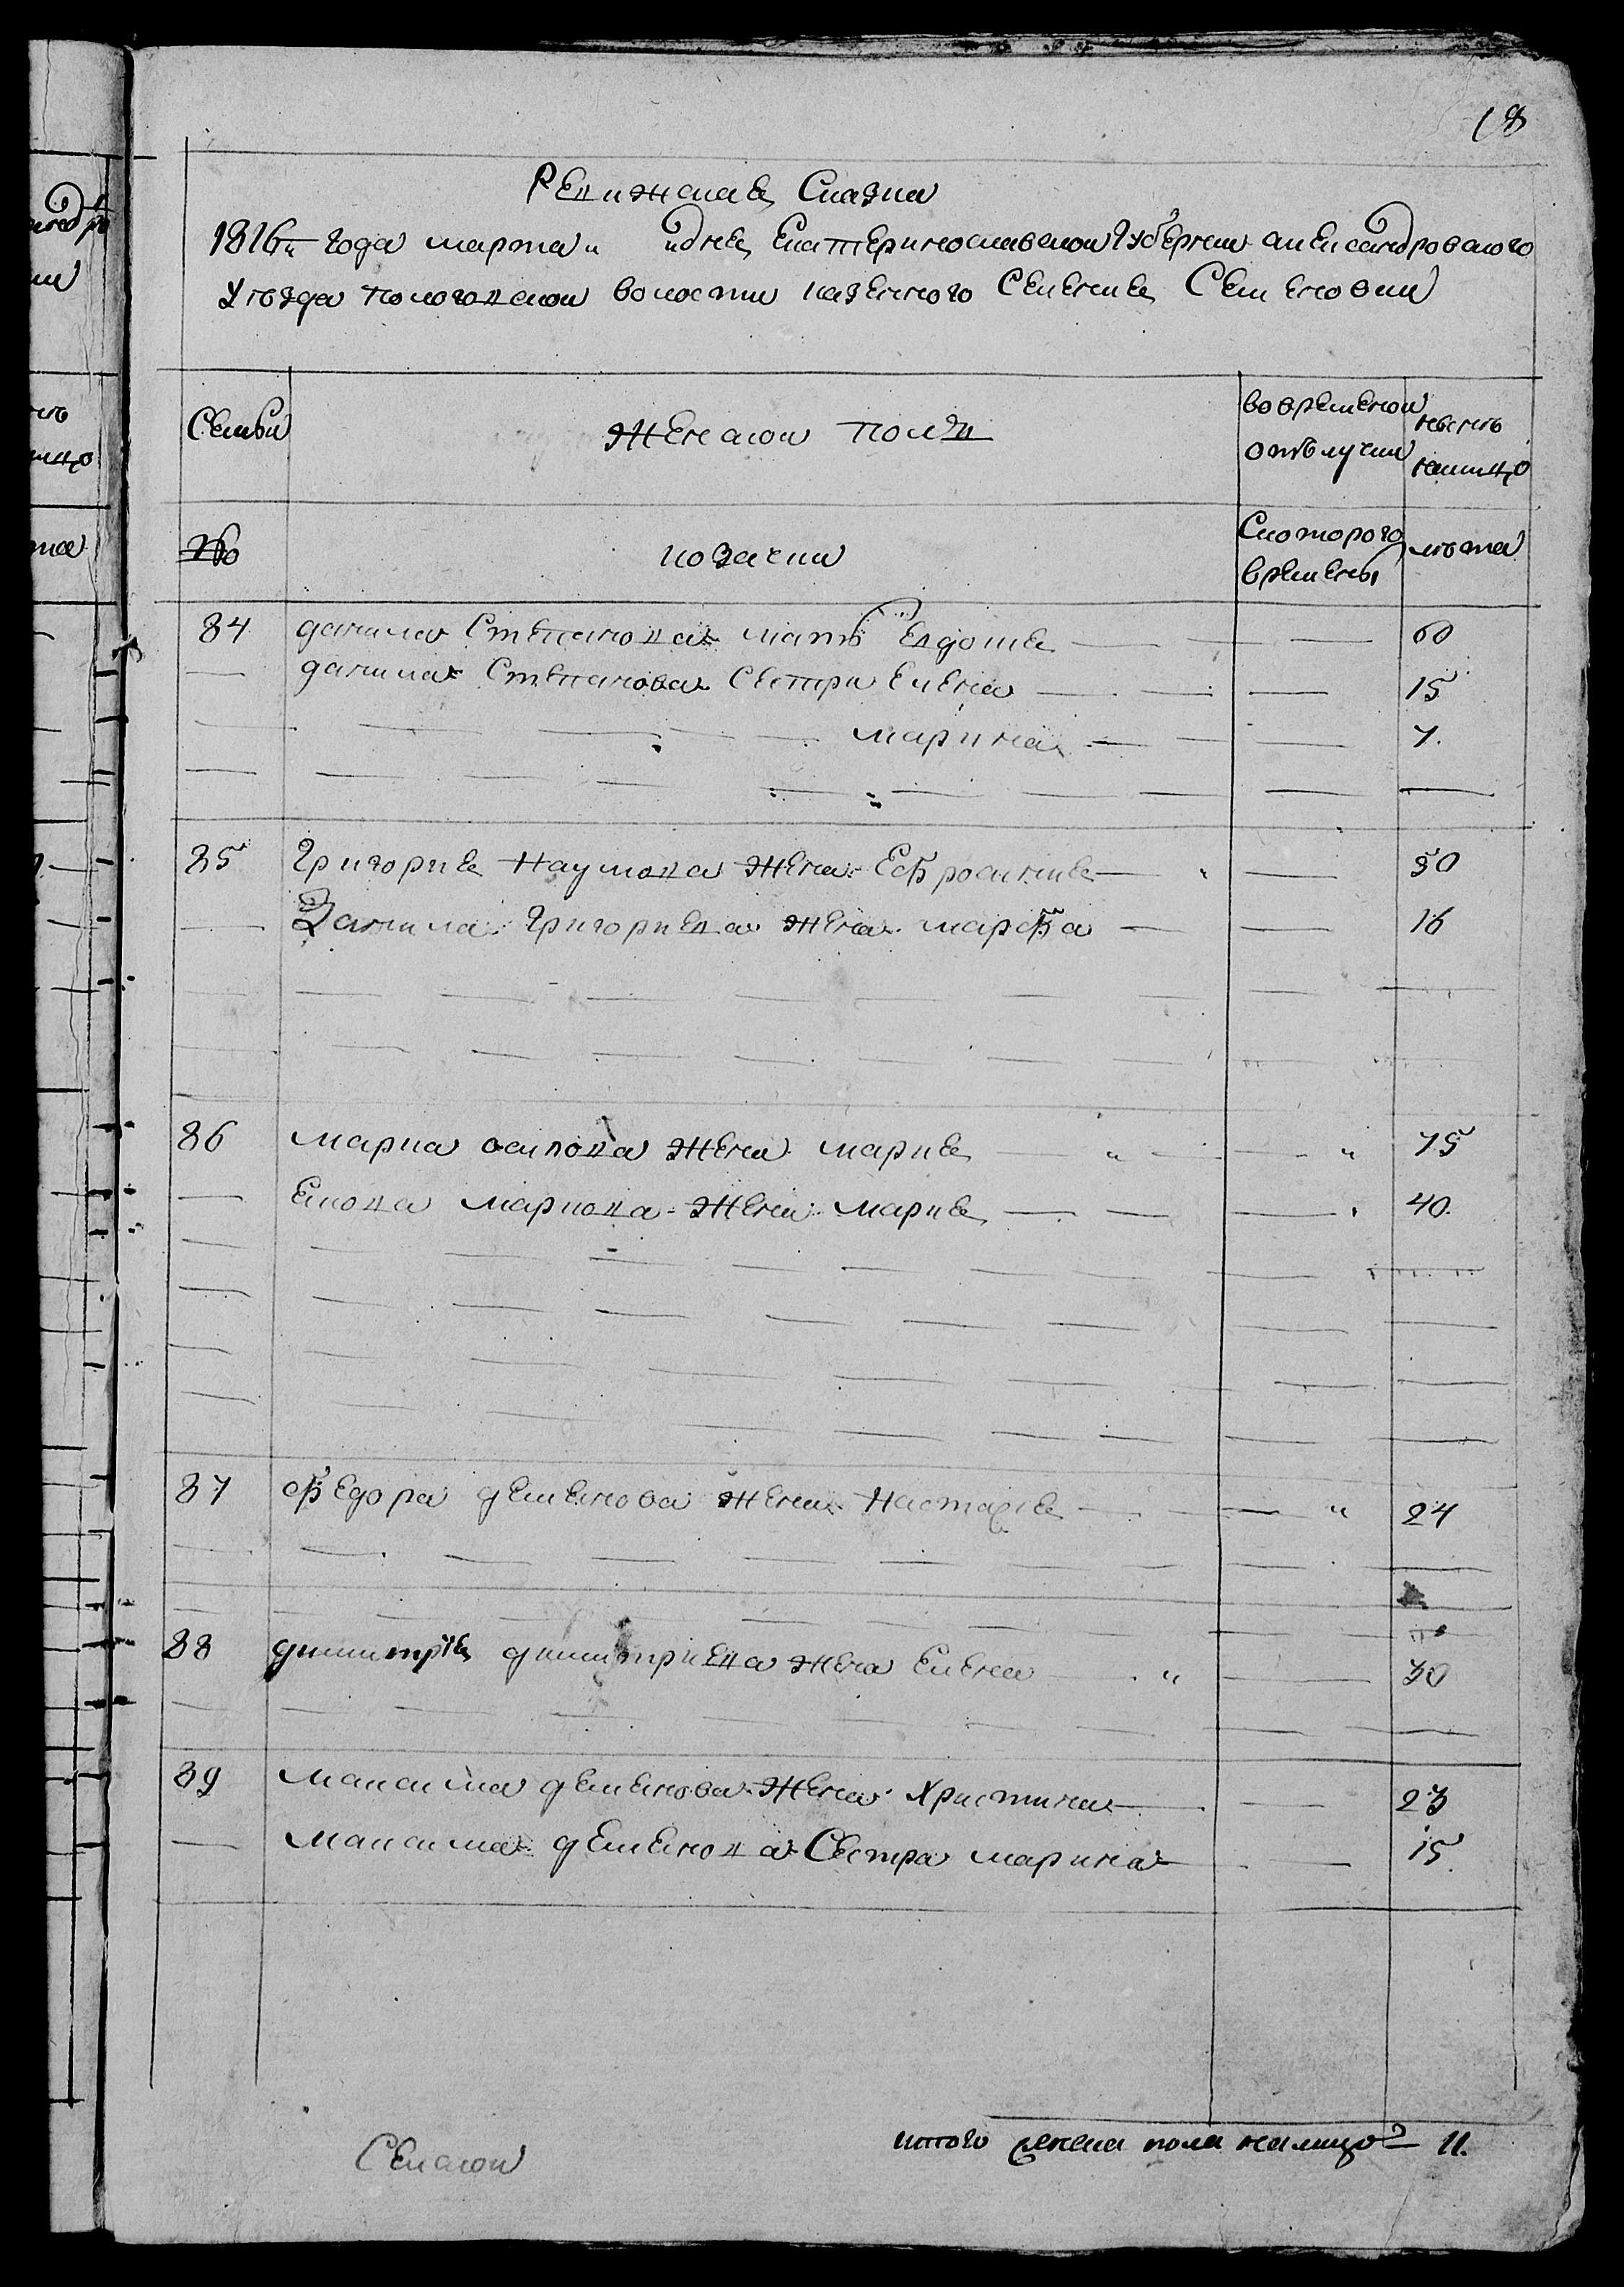 18
Ревижская Сказка
1816го года марта " дня Екатеринославской Губернии александровского
уезда пологовской волости казенного Селения Семеновки
Семьи
женской пол
во временной отьлучки
ныне налицо
№
козачки
Скоторого времены
лета
84 данила Степанова мать Евдокия 60
данила Степанова Сестри Елена 15
марина 7.
85 Григория Наумова жена Ефросиния 50
Данила Григориева жена марфа 16
86 марка осипова жена мария 75
Якова маркова жена мария 40.
87 федора деменкова жена Настасия 24
88 димитрія димитриева жена Елена 30
89 максима деменкова жена Христина 23
максима деменкова Сестра марина 15.
итого женска пола налицо 11.
Селской